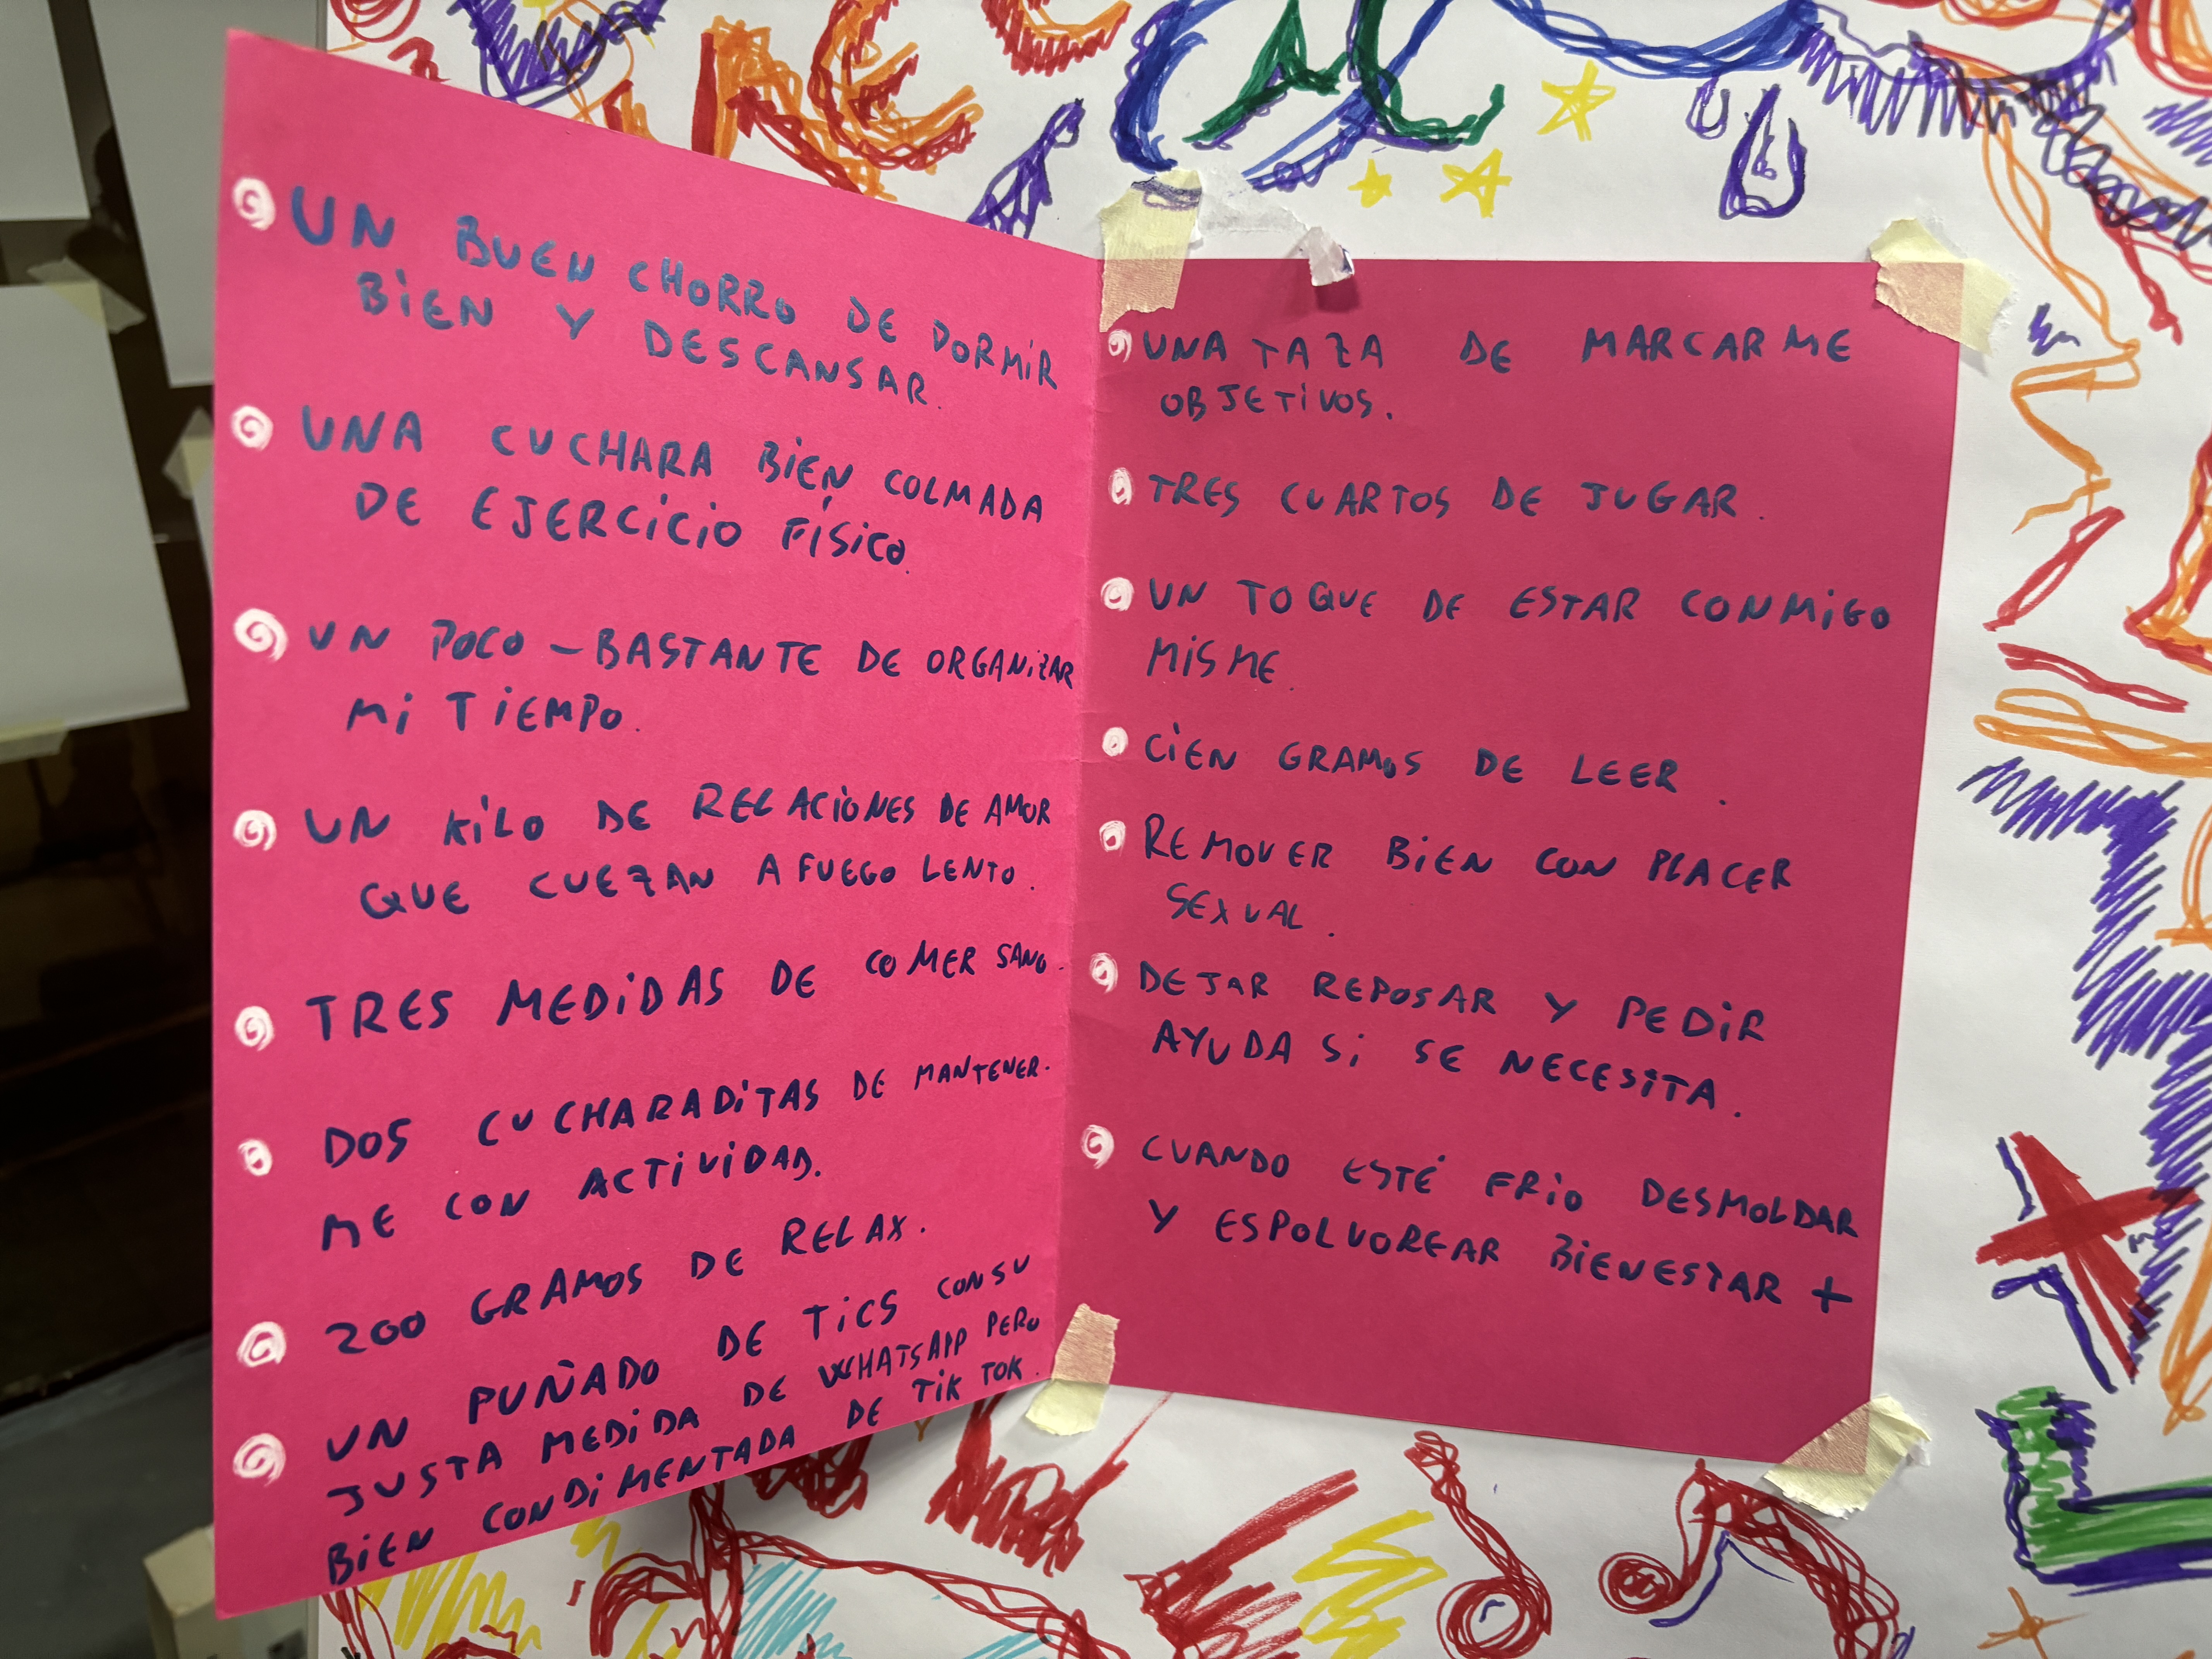 UN BUEN CHORRO DE DORMIR
BIEN Y DESCANSAR.
UNA CUCHARA BIEN COLMADA
DE EJERCICIO FÍSICO.
UN POCO - BASTANTE DE ORGANIZAR
MI TIEMPO.
UN KILO DE RELACIONES DE AMOR
QUE CUEZAN A FUEGO LENTO.
TRES MEDIDAS DE COMER SANO.
DOS CUCHARADITAS DE MANTENER-
ME CON ACTIVIDAD.
200 GRAMOS DE RELAX.
UN PUÑADO DE TICS CON SU
JUSTA MEDIDA DE WHATSAPP PERO
BIEN CONDIMENTADA DE TIK TOK.
UNA TAZA DE MARCARME
OBJETIVOS.
TRES CUARTOS DE JUGAR.
UN TOQUE DE ESTAR CONMIGO
MISME.
CIEN GRAMOS DE LEER.
REMOVER BIEN CON PLACER
SEXUAL.
DEJAR REPOSAR Y PEDIR
AYUDA SI SE NECESITA.
CUANDO ESTÉ FRIO DESMOLDAR
Y ESPOLVOREAR BIENESTAR +